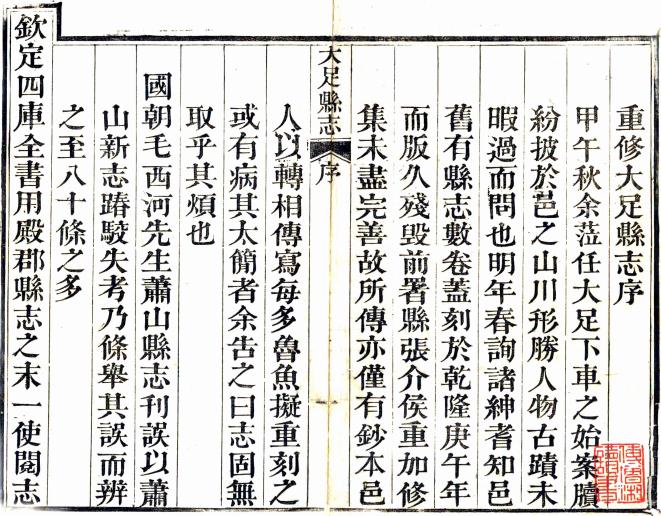 重修大足縣志序
甲午秋余蒞任大足下車之始案牘
紛披於邑之山川形勝人物古蹟未
暇過而問也明年春詢諸紳耆知邑
舊有縣志數卷蓋刻於乾隆庚午年
而版久殘毀前署縣張介侯重加修
集未盡完善故所傳亦僅有鈔本邑
大足縣志 序
人以轉相傳寫每多魯魚擬重刻之
或有病其太簡者余告之曰志固無
取乎其煩也
國朝毛西河先生蕭山縣志刊誤以蕭
山新志踳駁失考乃條舉其誤而辨
之至八十條之多
欽定四庫全書用殿郡縣志之末一使閱志